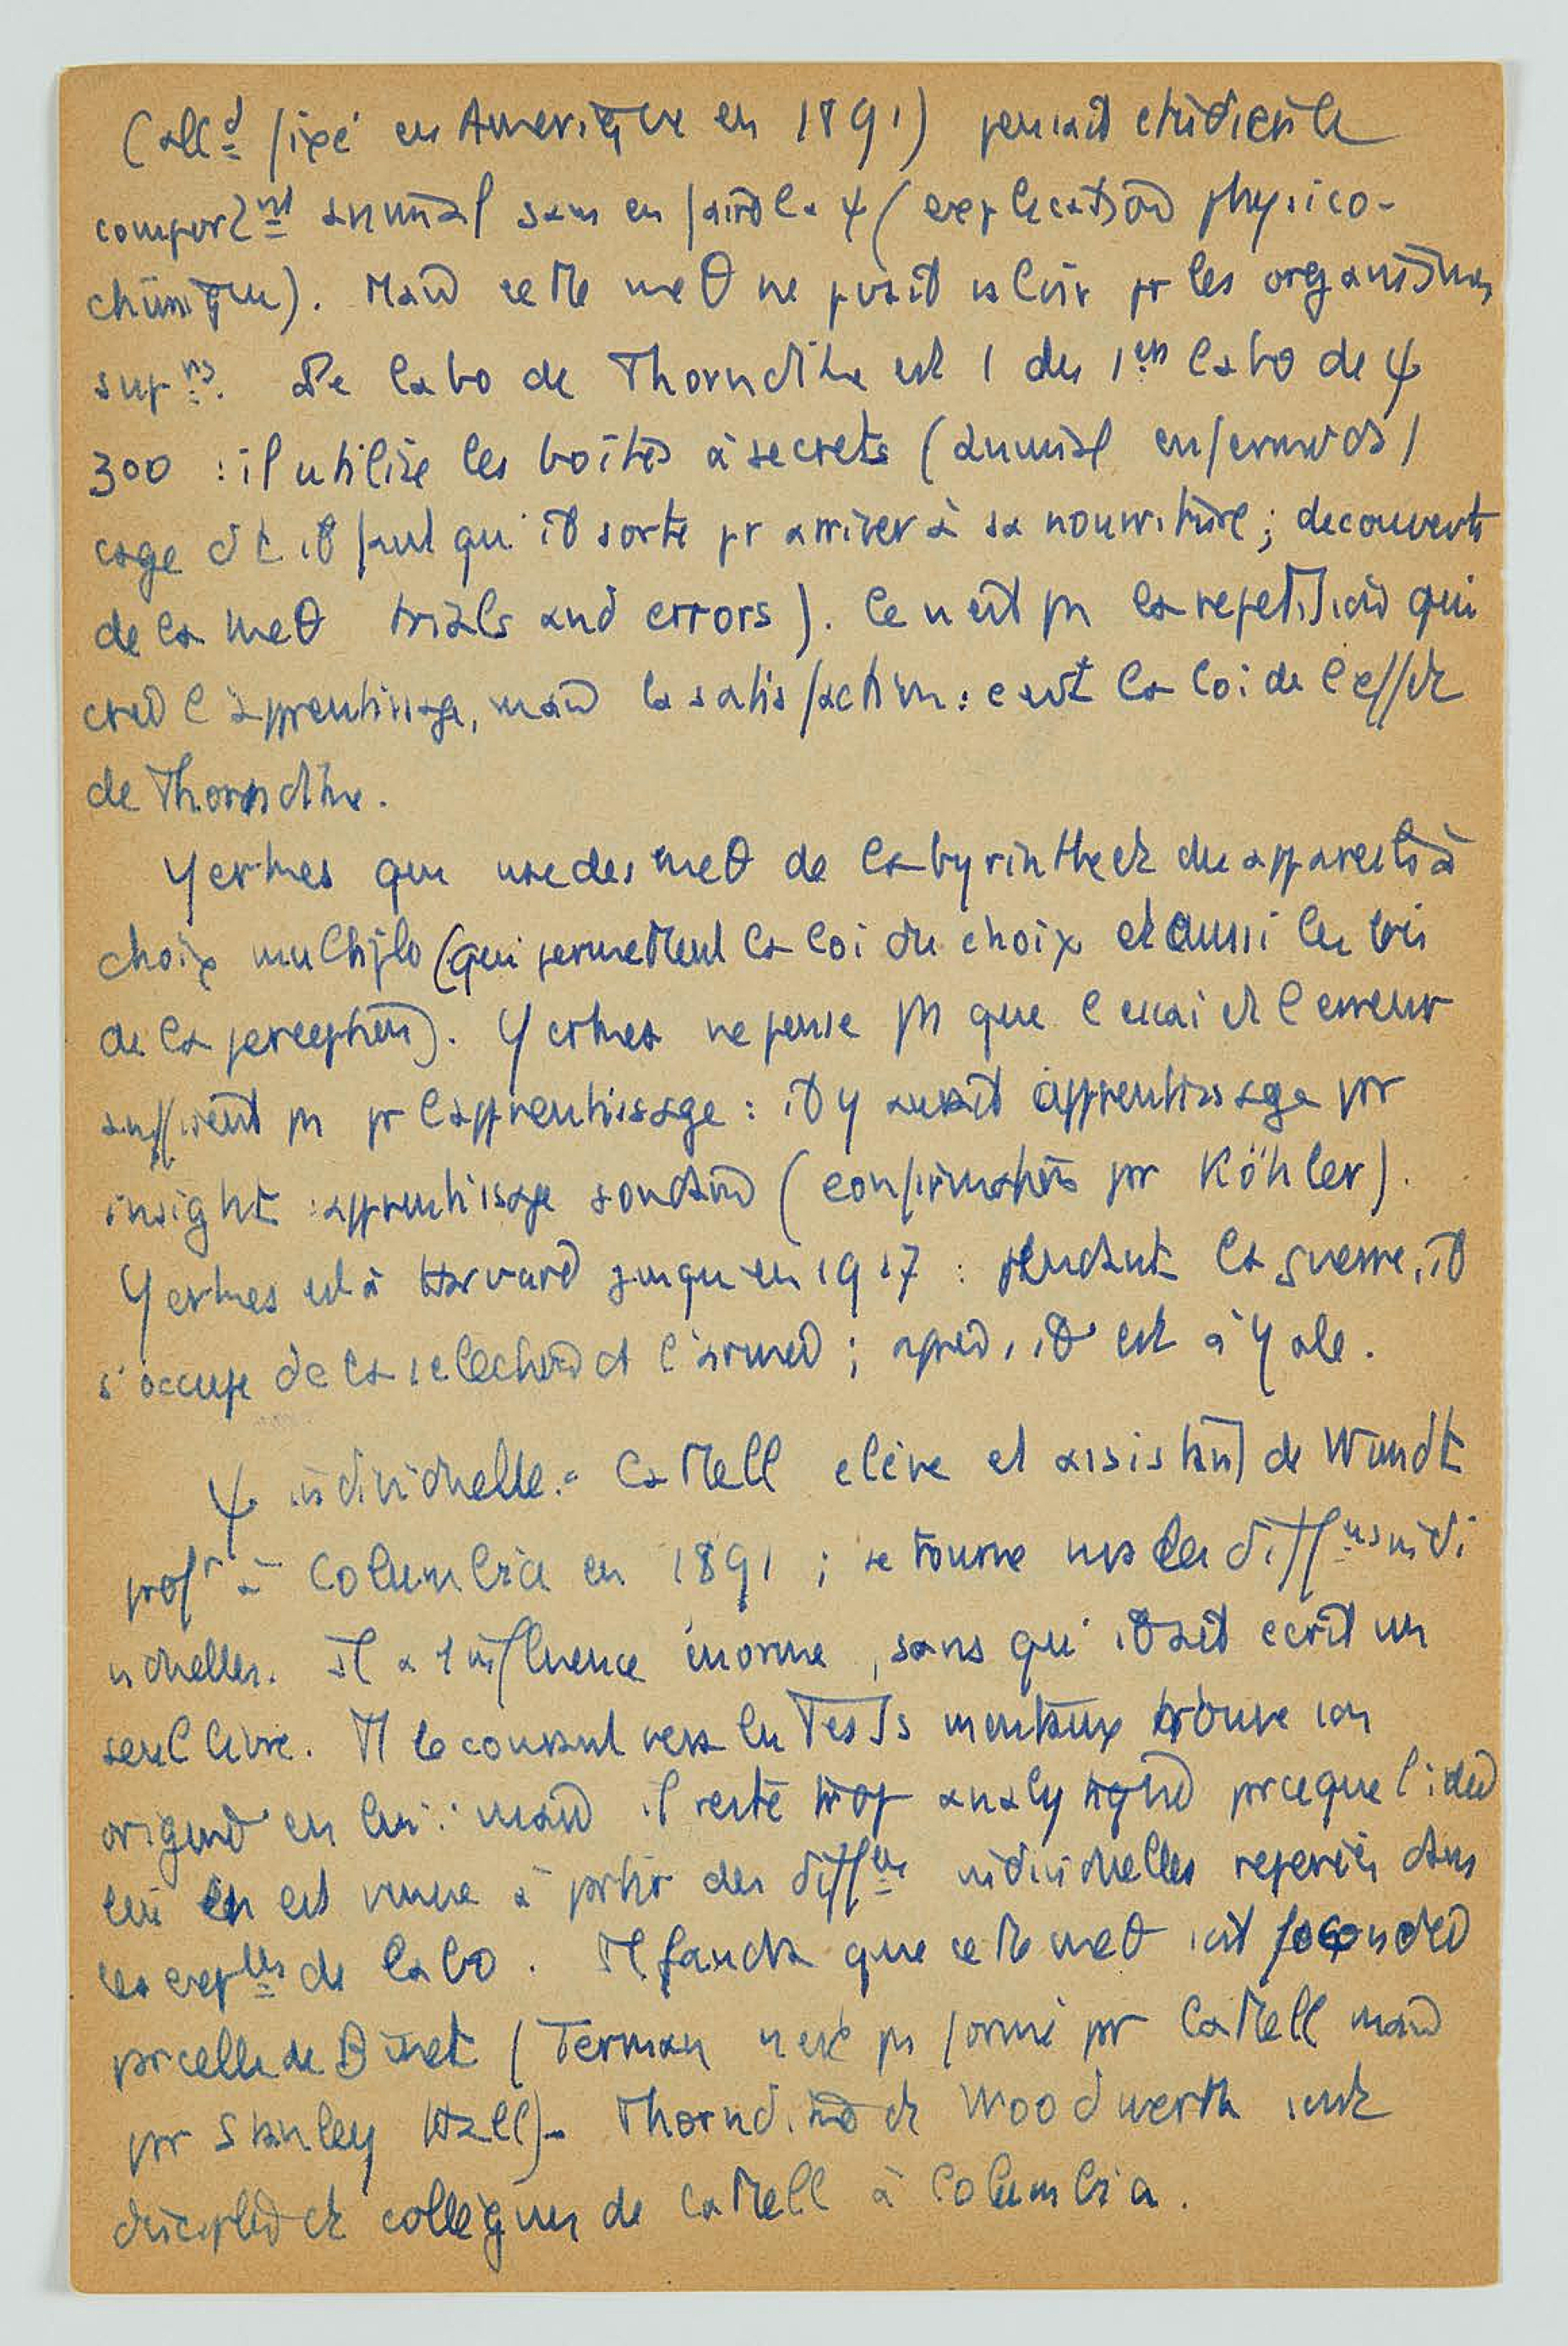 (all^d fixé en Amérique en 1891) pensait étudier le
comport^nt animal sans en faire la ψ (explication physico-
chimique). Mais cette meθ ne pvait valoir pr les organismes
sup^rs. Le labo de Thorndike est 1 des 1^ers labo de ψ
zoo : il utilise les boîtes à secrets (animal enfermé ds 1
cage d'où il faut qu'il sorte pr arriver à sa nourriture ; découverte
de la meθ trials and errors). Ce n'est pas la répétition qui
crée l'apprentissage, mais la satisfaction : c'est la loi de l'effet
de Thorndike.
Yerkes qui use des meθ de labyrinthe et des appareils à
choix multiple (qui permettent la loi du choix et aussi les lois
de la perception). Yerkes ne pense pas que l'essai et l'erreur
suffisent pas pr l'apprentissage : il y aurait apprentissage par
insight : apprentissage soudain (confirmation par Köhler).
Yerkes est à Harvard jusqu'en 1917 : pendant la guerre, il
s'occupe de la sélection de l'armée ; après, il est à Yale.
ψ individuelle.= Cattell élève et assistant de Wundt
prof^r à Columbia en 1891 ; se tourne vers les diff^ces indi
viduelles. Il a 1 influence énorme, sans qu'il ait écrit un
seul livre. Tt le courant vers les Tests mentaux trouve son
origine en lui : mais il reste trop analytique parce que l'idée
lui en est venue à partir des diff^ces individuelles repérées dans
les exp^ces de labo. Il faudra que cette meθ soit fécondée
par celle de Binet (Terman n'est pas formé par Cattell mais
par Stanley Hall)- Thorndike et Woodwerth sont
disciples et collègues de Cattell à Columbia.